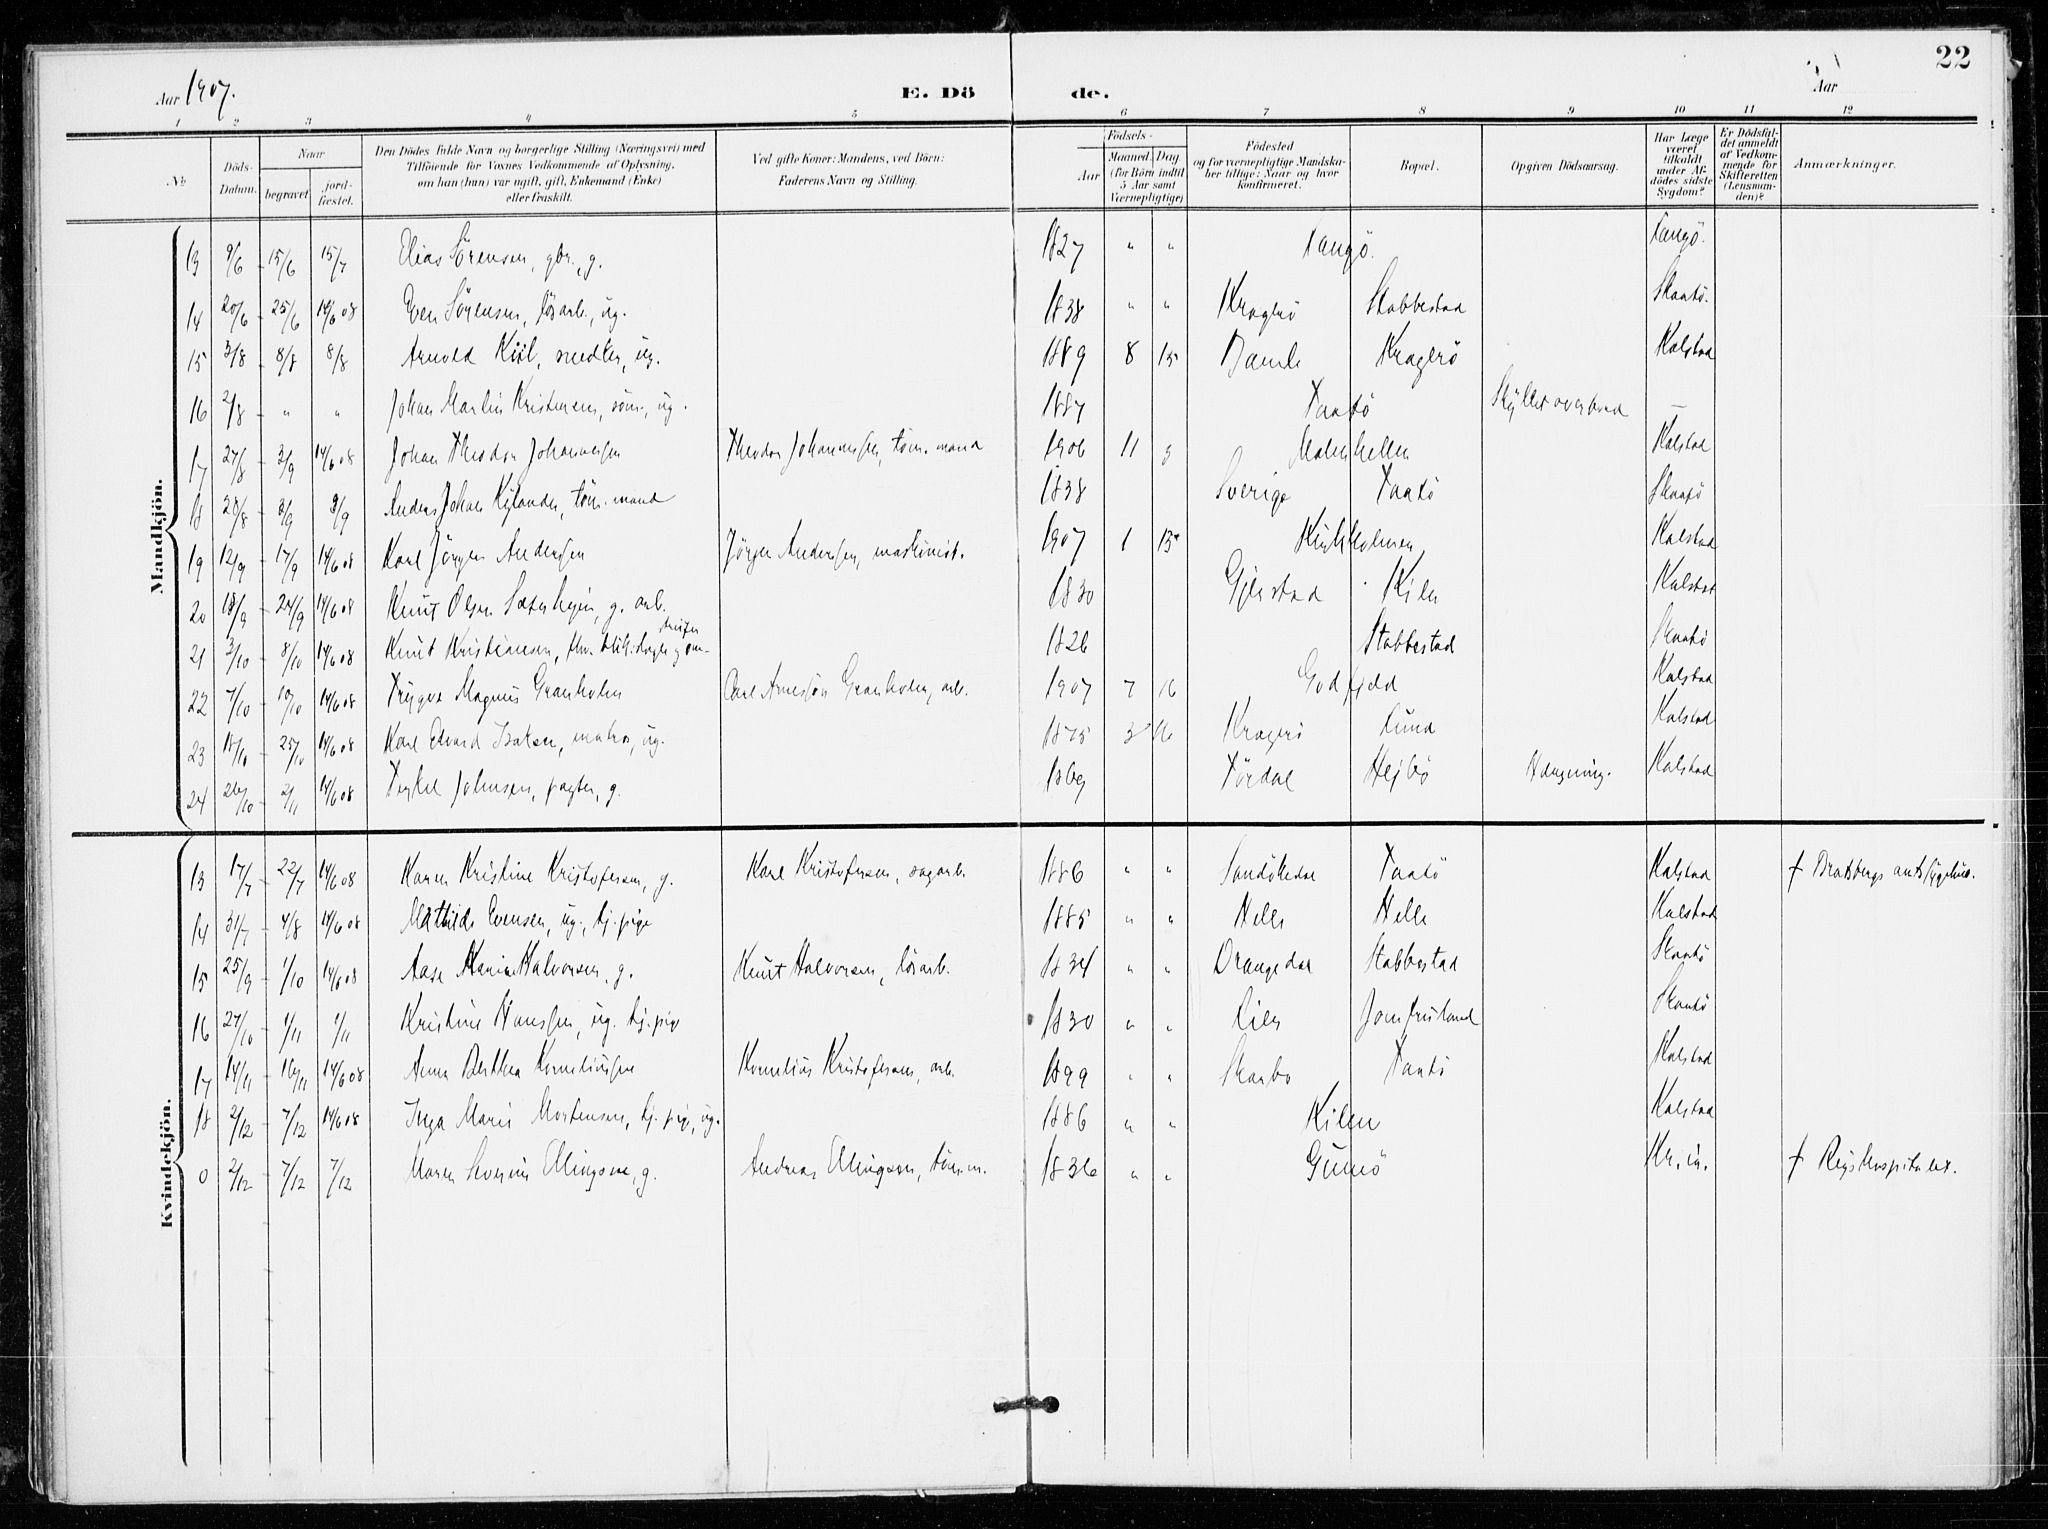 22
Aar 1907.
E. Dö de.
Aar
1 2 3 4 5 6 7 8 9 10 11 12
№
Döds-Datum.
Naar
begravet
jord-fæstet.
Den Dödes fulde Navn og borgerlige Stilling (Næringsvei) med Tilföiende for Voxnes Vedkommende af Oplysning, om han (hun) var ugift, gift, Enkemand (Enke) eller fraskilt.
Ved gifte Koner: Mandens, ved Börn: Faderens Navn og Stilling.
Födsels-
Aar
Maaned. Dag.
(for Börn indtil 5 Aar samt Værnepligtige)
Födested og for værnepligtige Mandskaber tillige: Naar og hvor konfirmeret.
Bopæl.
Opgiven Dödsaarsag.
Har Læge været tilkaldt under Afdödes sidste Sygdom?
Er Dödsfaldet anmeldt af Vedkommende for Skifteretten (Lensmanden)?
Anmærkninger.
Mandkjön.
13 9/6 15/6 15/7 Elias Sörensen, gbr., g. 1827 " " Langö. Langö.
14 20/6 25/6 14/6 08 Even Sörensen, lösarb., ug. 1838 " " Kragerö Stabbestad Skaatö.
15 3/8 8/8 8/8 Arnold Kiil, ug. 1889 8 15 Bamle Kragerö Kalstad
16 2/8 " " Johan Martin Kristensen, söm., ug. 1887 Taatö Skyllet overbord —
17 27/8 3/9 14/6 08 Johan Theodor Johannessen Theodor Johannessen, töm.mand 1906 11 9 Kalstad
18 28/8 8/9 8/9 Anders Johan Kylander, töm.mand 1838 Sverige Taatö Skaatö
19 12/9 17/9 14/6 08 Karl Jörgen Andersen Jörgen Andersen, maskinist. 1907 1 15 Kirkholmen Kalstad
20 18/9 24/9 14/6 08 Knut Olsen g. arb. 1830 Gjerstad Kilen Kalstad
21 3/10 8/10 14/6 08 Knut Kristiansen, 1826 Stabbestad Skaatö
22 7/10 10/10 14/6 08 Trygve Magnus Granholm Carl Arnesson Granholm, arb. 1907 7 16 Godfjeld Kalstad
23 18/10 25/10 14/6 08 Karl Edvard Isaksen, matros, ug. 1875 3 16 Kragerö Lund Kalstad
24 26/10 2/11 14/6 08 Terkel Johnsen, pagter, g. 1869 Tördal Hejbö Hængning. Kalstad
Kvindekjön.
13 17/7 22/7 14/6 08 Karen Kristine Kristofersen, g. Karl Kristofersen, sagarb. 1886 " " Sandökedal Taatö Kalstad † Bratsbergs amtssygehus.
14 31/7 4/8 14/6 08 Mathilde Evensen, ug., tj.pige 1885 " " Helle Helle Kalstad
15 25/9 1/10 14/6 08 Aase Marie Halvorsen, g. Knut Halvorsen, lösarb. 1834 " " Drangedal Stabbestad Skaatö
16 27/10 1/11 1/11 Kristine Hanssen, ug. tj.pige 1830 " " Lier Jomfruland Skaatö
17 14/11 16/11 14/6 08 Anna Berthea Korneliussen Kornelius Kristofersen, arb. 1899 " " Skarbo Taatö Kalstad
18 2/12 7/12 14/6 08 Inga Marie Mortensen, tj.pige, ug. 1886 " " Kilen Kalstad
0 2/12 7/12 7/12 Maren Severine Ellingsen, g. Andreas Ellingsen, töm.m. 1836 " " Gumö Kr.ia. † Rigshospitalet.